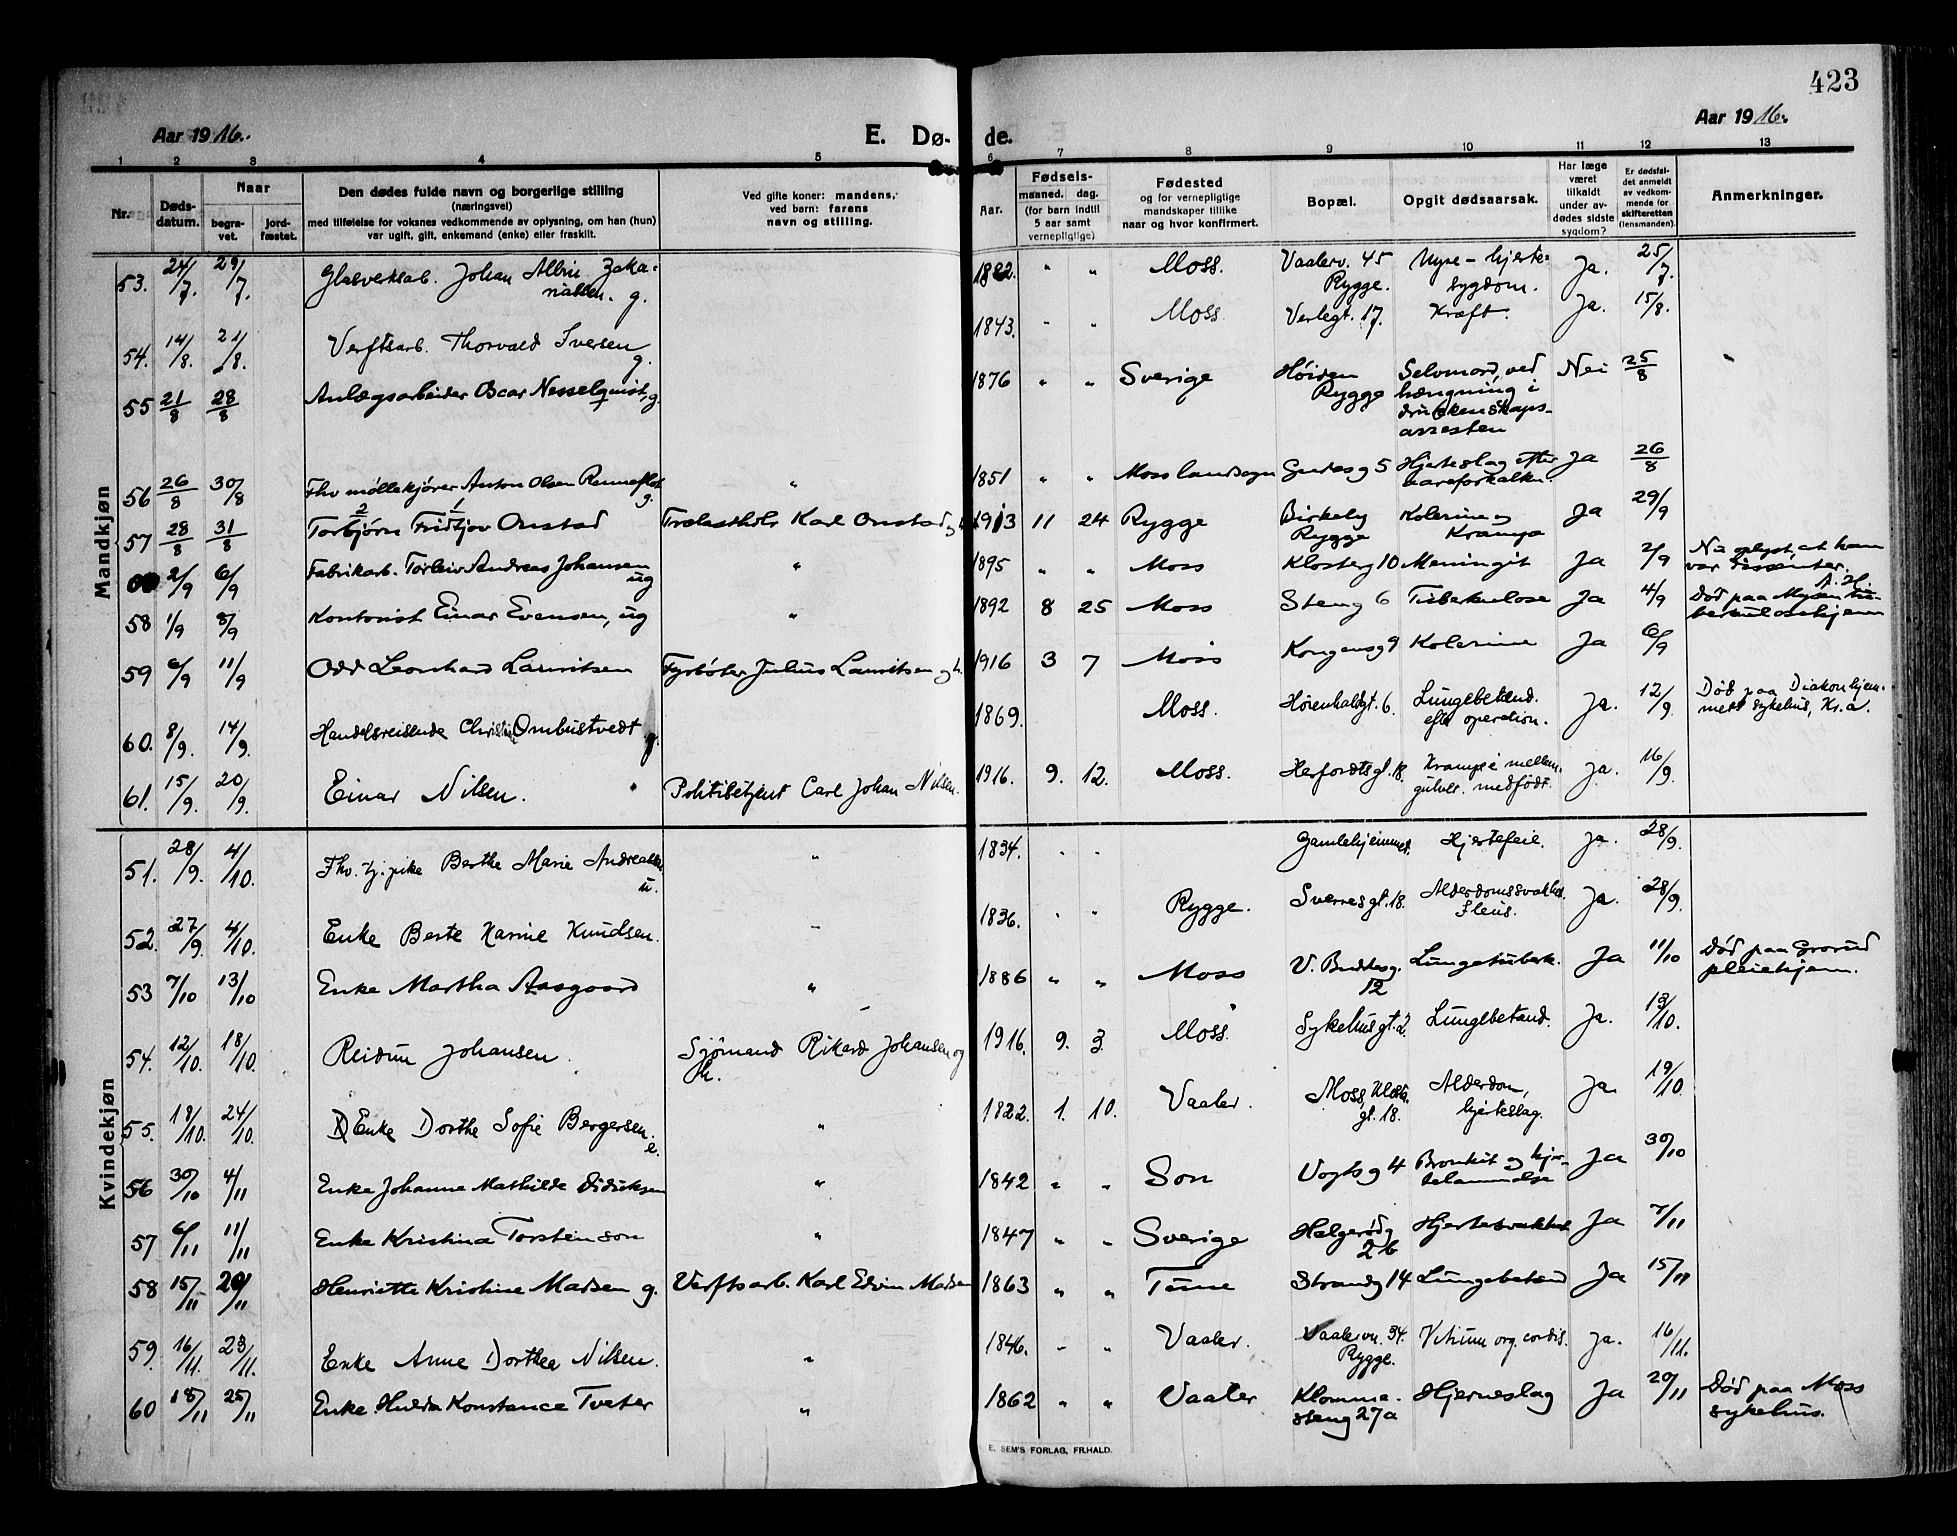 423
Aar 1916.
E. Dø-
de.
Aar 1916.
1 2 3 4 5 6 7 8 9 10 11 12 13
Nr. Døds-datum. Naar begra-vet. jord-fæstet.
Den dødes fulde navn og borgerlige stilling
(næringsvei)
med tilføielse for voksnes vedkommende av oplysning, om han (hun)
var ugift, gift, enkemand (enke) eller fraskilt.
Ved gifte koner: mandens,
ved barn: farens
navn og stilling.
Aar.
Fødsels-
maaned. dag.
(for børn indtil
5 aar samt
vernepligtige)
Fødested
og for vernepligtige
mandskaper tillike
naar og hvor konfirmert.
Bopæl.
Opgit dødsaarsak.
Har læge
været
tilkaldt
under av-
dødes sidste
sygdom?
Er dødsfal-
det anmeldt
av vedkom-
mende for
skifteretten
(lensmanden).
Anmerkninger.
Mandkjøn
53. 24/7. 29/7. Glasverksab. Johan Albin Zaka-
riassen. g. 1882. " " Moss. Vaalerv. 45
Rygge. Nyre - hjerte-
sygdom. Ja. 25/7.
54. 14/8. 21/8. Verftsarb. Thorvald Iversen g. 1843. " " Moss. Verlegt. 17. Kræft. Ja. 15/8.
55 21/8 28/8 Anlægsarbeider Oscar Nesselquist, g. 1876 " " Sverige Høiden
Rygge Selvmord, ved
hængning i
drukkenskaps-
arresten Nei 25/8
56 26/8 30/8 Fhv møllekjører Anton Olsen g. " 1851 " " Moss landsogn 5 Hjerteslag efter
aareforkalkn. Ja 26/8
57 28/8 31/8 2 1
Torbjørn Fridtjov Onstad Trælasthdlr Karl Onstad 1913 11 24 Rygge Birkely
Rygge Kolerine og
Krampe Ja 29/9
2/9 6/9 Fabrikarb. Torleiv Andreas Johansen
ug " 1895 " " Moss Klosterg 10 Meningit Ja 2/9 Nu oplyst, at han
var dissenter.
58 1/9 8/9 Kontorist Einar Evensen, ug " 1892 8 25 Moss Steng 6 Tuberkulose Ja 4/9 Død paa Mysen tu-
berkulosehjem
59 6/9 11/9 Odd Leonhard Lauritsen Fyrbøter Julius Lauritsen og h. 1916 3 7 Moss Kongensg 9 Kolerine Ja 6/9
60. 8/9. 14/9. Handelsreisende Christian Ombustvedt g. 1869. Moss. 6. Lungebetænd.
eft. operation. Ja. 12/9. Død paa Diakonhjem-
mets sykehus, Kr.a.
61. 15/9. 20/9. Einar Nilsen. Politibetjent Carl Johan Nilsen. 1916. 9. 12. Moss. Herfordtsgt. 18. Krampe i mellem-
gulvet. medfødt. Ja. 16/9.
Kvindekjøn
51. 28/9. 4/10. Fhv. tj. pike Berthe Marie Andreassen
u. " 1834. " " Gamlehjemmet. Hjertefeil. Ja. 28/9.
52. 27/9. 4/10. Enke Berte Karine Knudsen. " 1836. " " Rygge. Sverresgt. 18. Alderdomssvakhet.
Ileus. Ja. 28/9.
53 7/10 13/10 Enke Martha Aasgaard " 1886 " " Moss V. Buddesg.
12 Lungetuberk. Ja 11/10 Død paa Grorud
pleiehjem.
54. 12/10. 18/10. Reidun Johansen. Sjømand Rikard Johansen og
h. 1916. 9. 3. Moss. Sykehusgt. 2. Lungebetænd. Ja. 13/10.
55. 18/10. 24/10. Enke Dorthe Sofie Bergersen.
e. " 1822. 1. 10. Vaaler. Moss, Kloster
gt. 18. Alderdom,
hjerteslag. Ja 19/10.
56 30/10 4/11 Enke Johanne Mathilde Didriksen " 1842 " " Son Vogtsg 4 Bronkit og hjer-
telammelse Ja 30/10
57 6/11 11/11 Enke Kristina Torstenson " 1847 " " Sverige Helgerødg
26 Hjertesvakhet Ja 7/11
58 15/11 20/11 Henriette Kristine Madsen g. Verftsarb. Karl Edvin Madsen 1863 " " Tune Strandg 14 Lungebetænd Ja 15/11
59. 16/11. 23/11. Enke Anne Dorthea Nilsen. " 1846. " " Vaaler. Vaalervn. 34.
Rygge. Vitium org. cordis. Ja. 16/11.
60 18/11 25/11 Enke Hulda Konstance Tveter " 1862 " " Vaaler Klomme-
steng 27a Hjerneslag Ja 20/11 Død paa Moss
sykehus.
E. SEM'S FORLAG, FR.HALD.